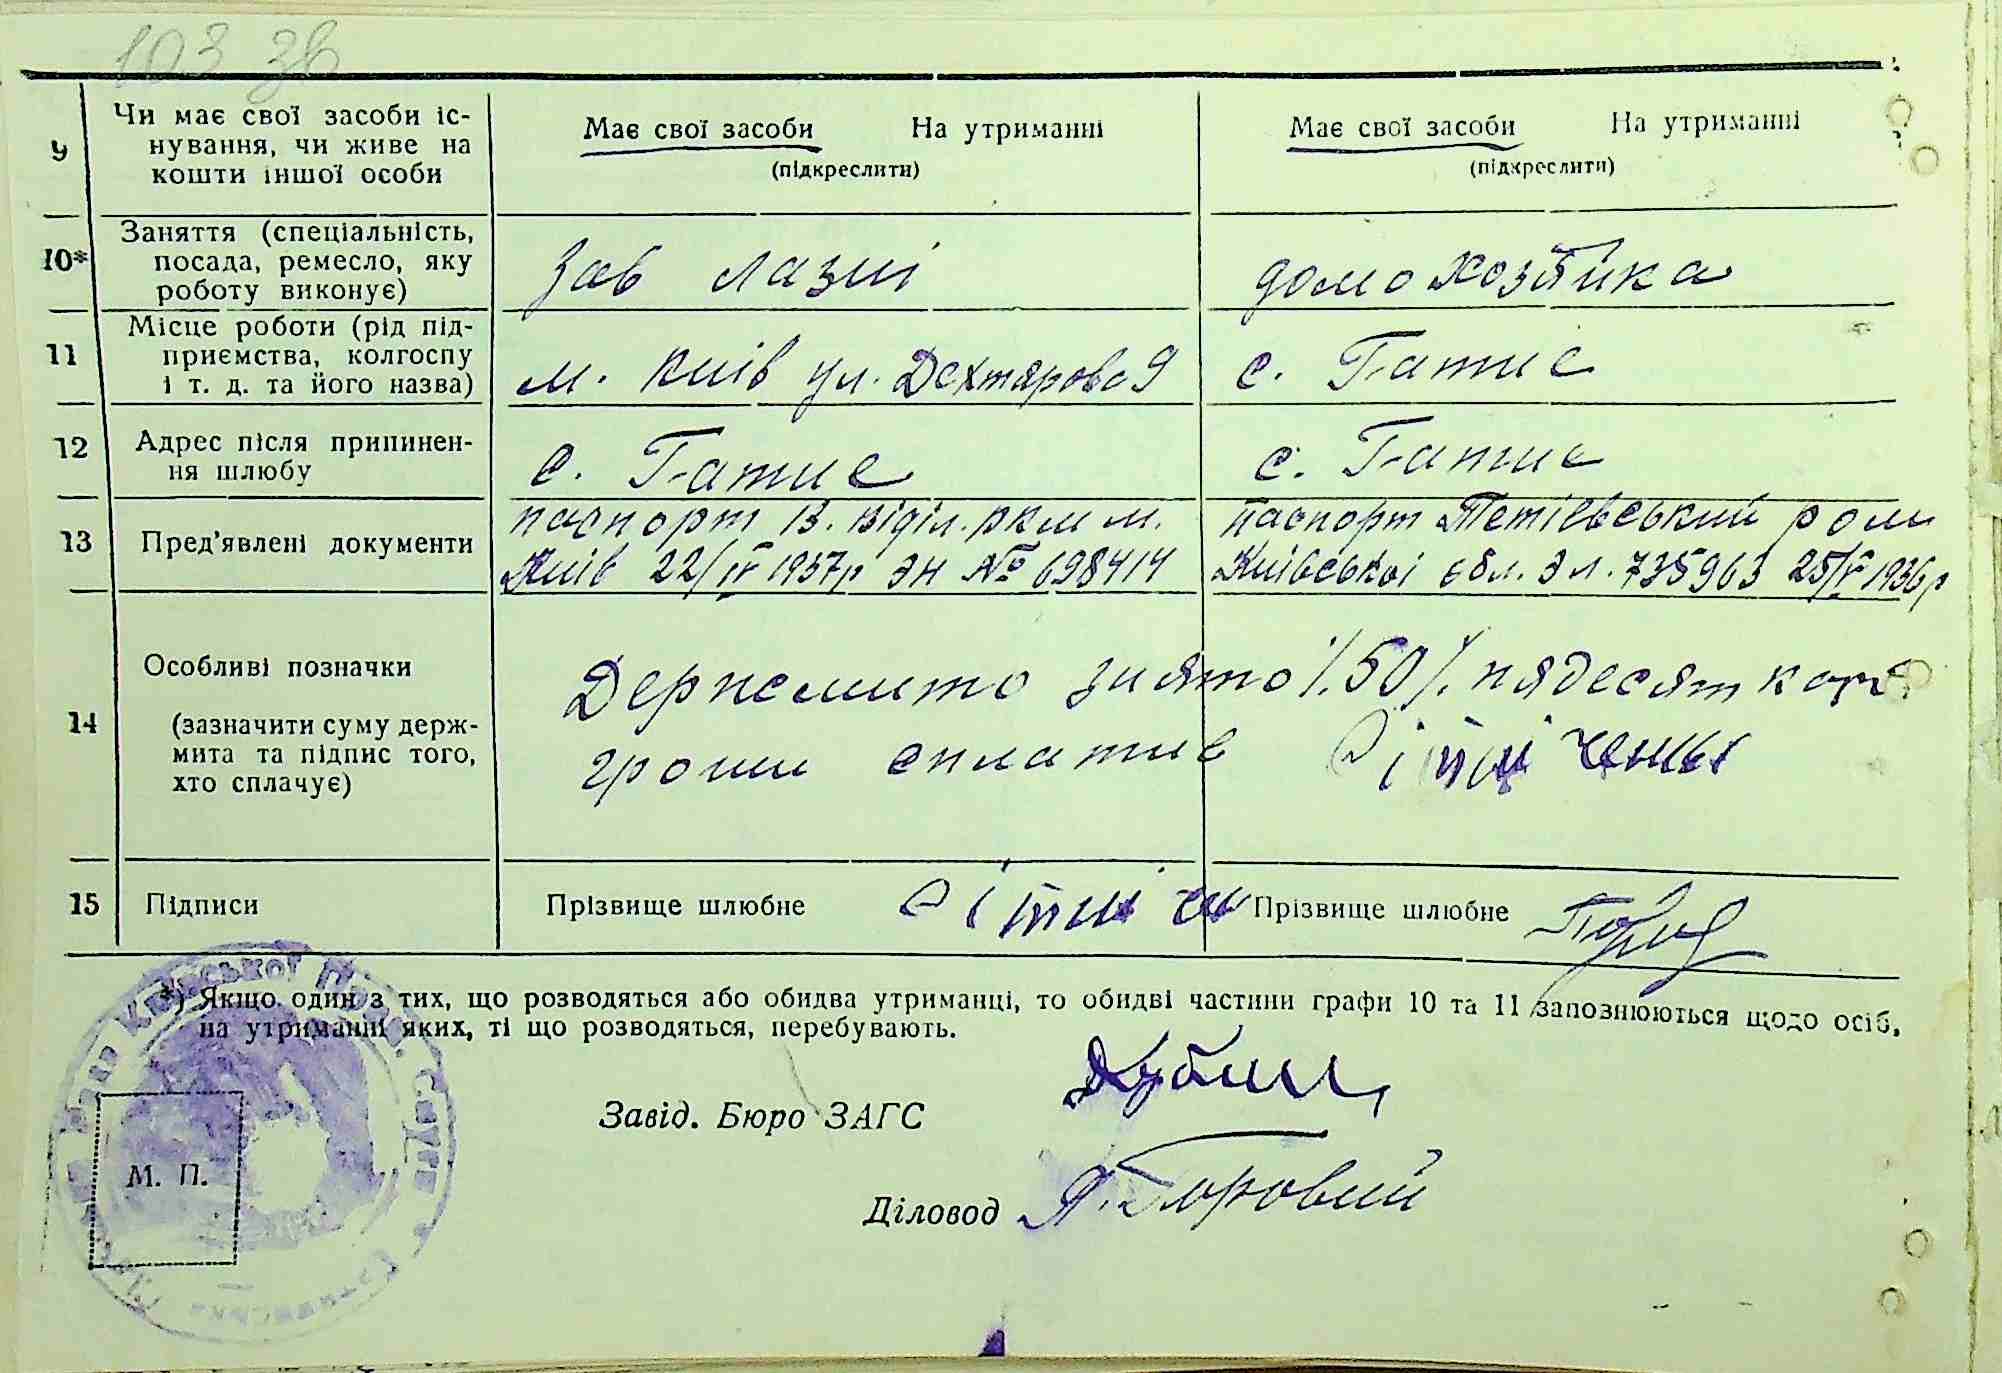 103 зв
9 Чи має свої засоби іс-
нування, чи живе на
кошти іншої особи
Має свої засоби На утриманні
(підкреслити)
Має свої засоби На утриманні
(підкреслити)
10* Заняття (спеціальність,
посада, ремесло, яку
роботу виконує)
Зав лазні
домохозяйка
11 Місце роботи (рід під-
приємства, колгоспу
і т. д. та його назва)
м. Київ ул. Дехтярова 9
с. Гатне
12 Адрес після припинен-
ня шлюбу
с. Гатне
с. Гатне
13 Пред'явлені документи
паспорт 13. віділ. ркм м.
Київ 22/IV 1937р ЭН № 698414
паспорт Тетіевський ром
Київської обл. Эл. 735963 25/V 1936р
14 Особливі позначки
(зазначити суму держ-
мита та підпис того,
хто сплачує)
Держмито знято /.50/. пядесят кар
гроши сплатив
15 Підписи
Прізвище шлюбне
Прізвище шлюбне
*) Якщо один з тих, що розводяться або обидва утриманці, то обидві частини графи 10 та 11 запознюються щодо осіб,
на утриманні яких, ті що розводяться, перебувають.
Завід. Бюро ЗАГС
М. П.
Діловод Я. Горовий